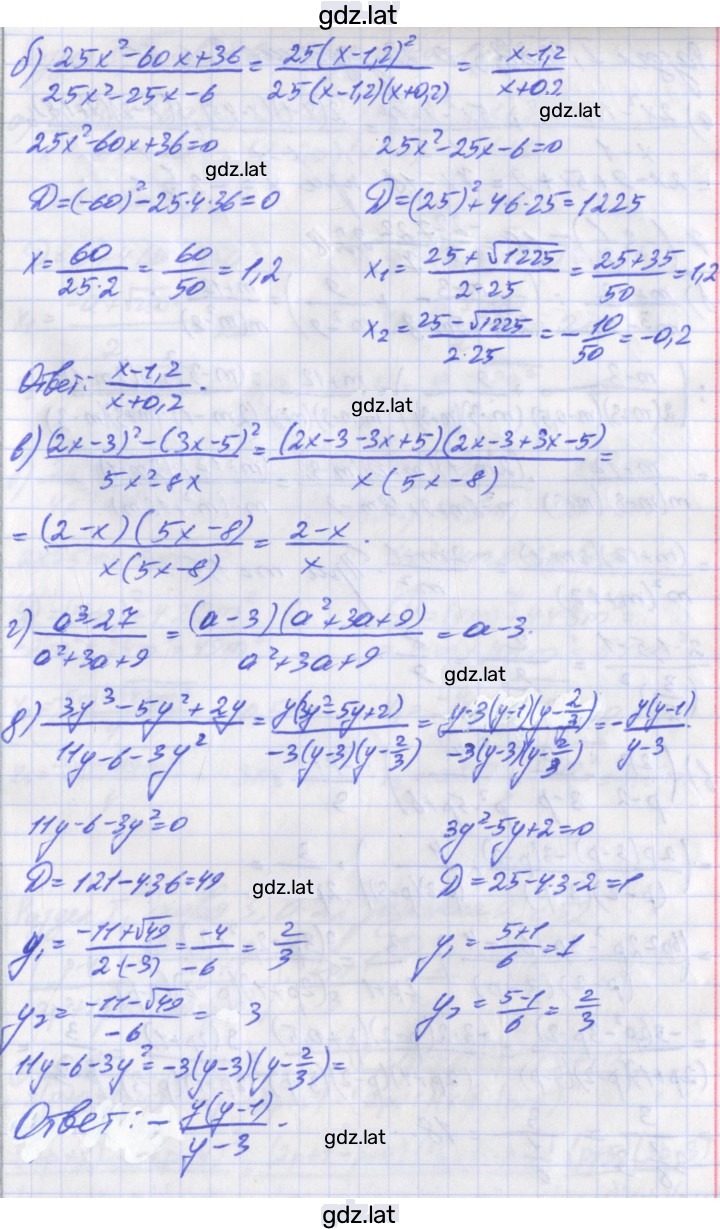 gdz.lat
б) (25x²-60x+36)/(25x²-25x-6) = 25(x-1,2)²/25(x-1,2)(x+0,2) = (x-1,2)/(x+0,2)
gdz.lat
25x²-60x+36=0 25x²-25x-6=0
gdz.lat
D=(-60)²-25·4·36=0 D=(25)²+4·6·25=1225
x=60/(25·2)=60/50=1,2 x₁=(25+√1225)/(2·25)=(25+35)/50=1,2
x₂=(25-√1225)/(2·25)=-10/50=-0,2
Ответ: (x-1,2)/(x+0,2).
gdz.lat
в) ((2x-3)²-(3x-5)²)/(5x²-8x)=(2x-3-3x+5)(2x-3+3x-5)/x(5x-8)=
=(2-x)(5x-8)/x(5x-8)=(2-x)/x.
г) (a³-27)/(a²+3a+9)=(a-3)(a²+3a+9)/(a²+3a+9)=a-3.
gdz.lat
д) (3y³-5y²+2y)/(11y-6-3y²)=y(3y²-5y+2)/-3(y-3)(y-2/3)=y·3(y-1)(y-2/3)/-3(y-3)(y-2/3)=-y(y-1)/(y-3).
11y-6-3y²=0 3y²-5y+2=0
D=121-4·3·6=49 D=25-4·3·2=1
gdz.lat
y₁=(-11+√49)/2(-3)=-4/-6=2/3 y₁=(5+1)/6=1
y₂=(-11-√49)/-6=3 y₂=(5-1)/6=2/3
11y-6-3y²=-3(y-3)(y-2/3)=
Ответ: -y(y-1)/(y-3).
gdz.lat
gdz.lat